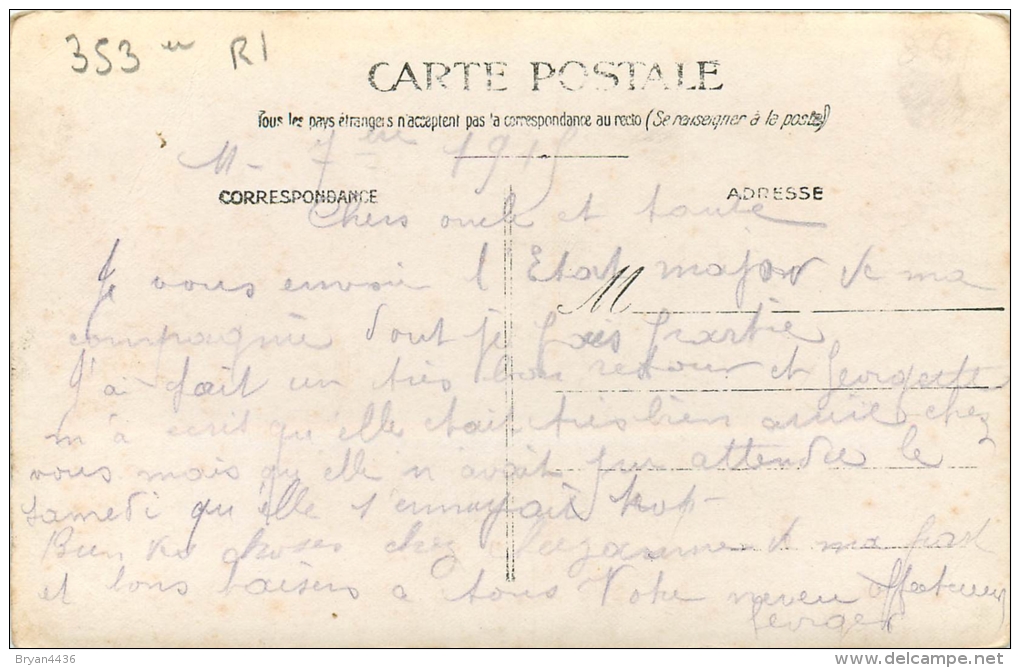 353 em RI
CARTE POSTALE
Tous les pays étrangers n'acceptent pas la correspondance au recto (Se renseigner à la poste)
7 1915
CORRESPONDANCE ADRESSE
Chers oncle et tante
Je vous envoie l'Etat major de ma
M
compagnie dont je fais partie
J'ai fait un très bon retour et Georgette
m'à écrit qu'elle était très bien chez
vous mais qu'elle n'avait pu attendre le
samedi qu'elle s'ennuyait trop
Bien des choses chez de ma part
et bons baisers a tous Votre neveu affectueux
Georges
Bryan4436
delcampe.net